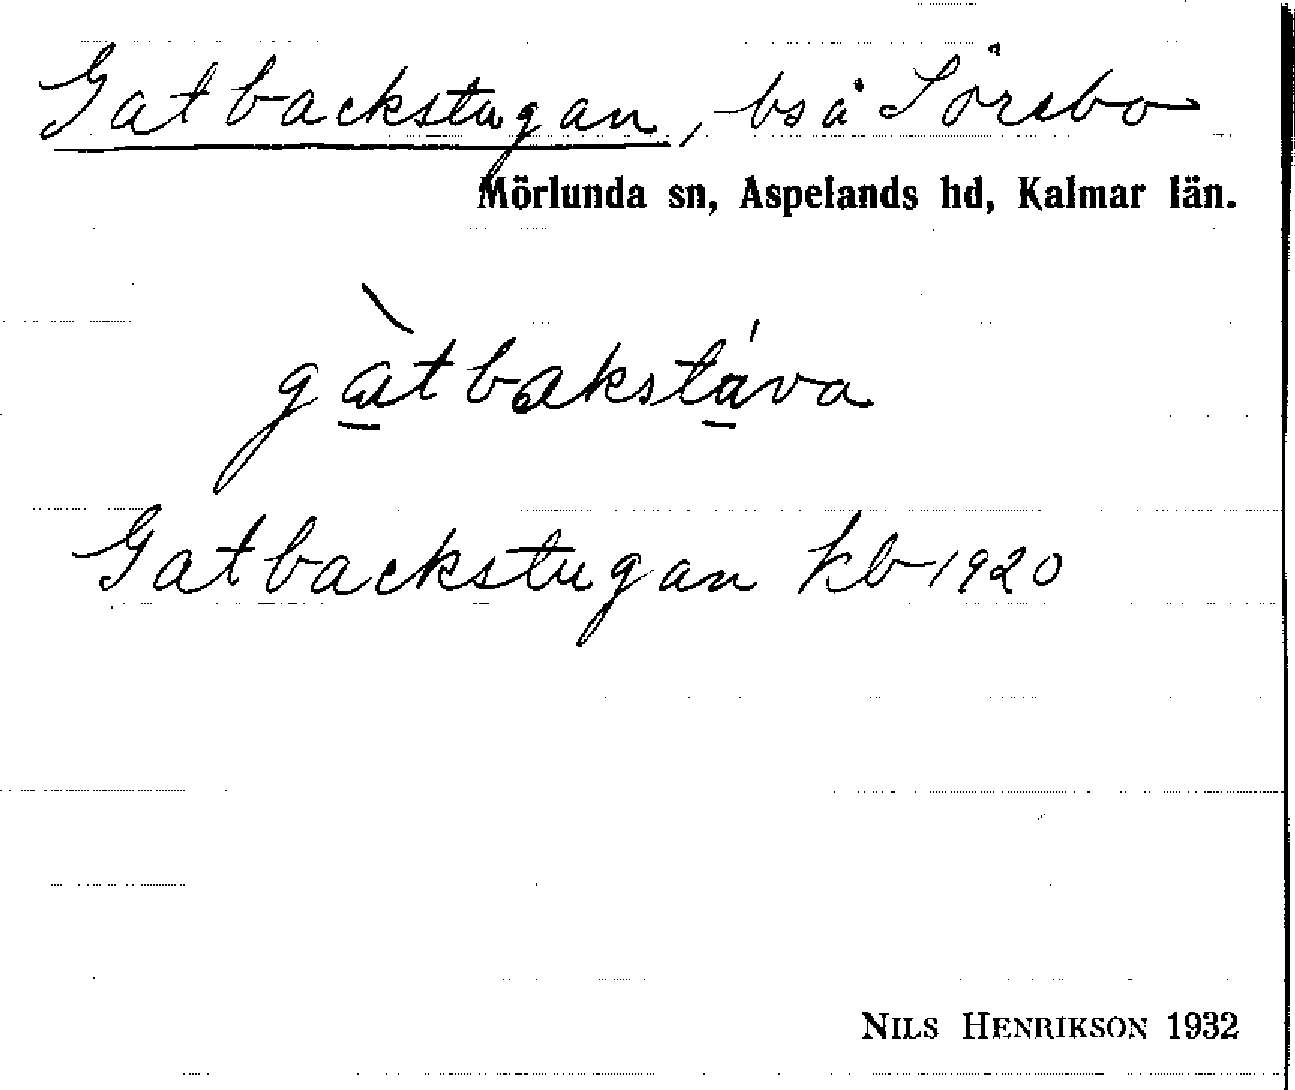 Gatbackstugan, bs å Sörebo
Mörlunda sn, Aspelands hd, Kalmar län.
gàtbakstáva
Gatbackstugan kb 1920
NILS HENRIKSON 1932